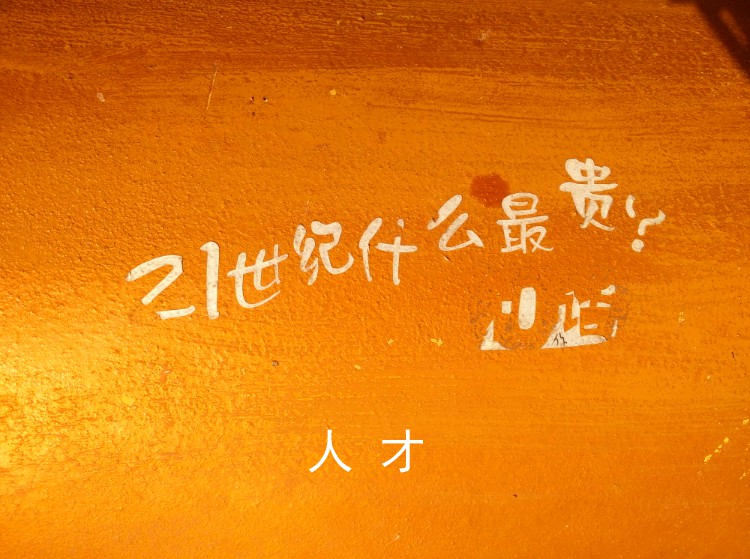 21世纪什么最贵?
人才